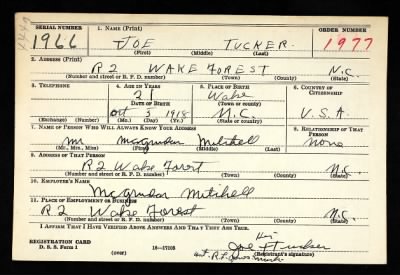 SERIAL NUMBER 1. NAME (Print) ORDER NUMBER
1966 JOE TUCKER 1977
(First) (Middle) (Last)
2. ADDRESS (Print)
R2 WAKE FOREST N.C.
(Number and street or R. F. D. number) (Town) (County) (State)
3. TELEPHONE 4. AGE IN YEARS 5. PLACE OF BIRTH 6. COUNTRY OF CITIZENSHIP
21 Wake
DATE OF BIRTH (Town or county)
Oct 5 1918 N.C. U.S.A.
(Exchange) (Number) (Mo.) (Day) (Yr.) (State or country)
7. NAME OF PERSON WHO WILL ALWAYS KNOW YOUR ADDRESS 8. RELATIONSHIP OF THAT PERSON
Mr Mitchell none
(Mr., Mrs., Miss) (First) (Middle) (Last)
9. ADDRESS OF THAT PERSON
R2 Wake Forest N.C.
(Number and street or R. F. D. number) (Town) (County) (State)
10. EMPLOYER'S NAME
Mitchell
11. PLACE OF EMPLOYMENT OR BUSINESS
R2 Wake Forest N.C.
(Number and street or R. F. D. number) (Town) (County) (State)
I AFFIRM THAT I HAVE VERIFIED ABOVE ANSWERS AND THAT THEY ARE TRUE.
REGISTRATION CARD
D. S. S. Form 1 (over) 16—17105 Joe Tucker
(Registrant's signature)